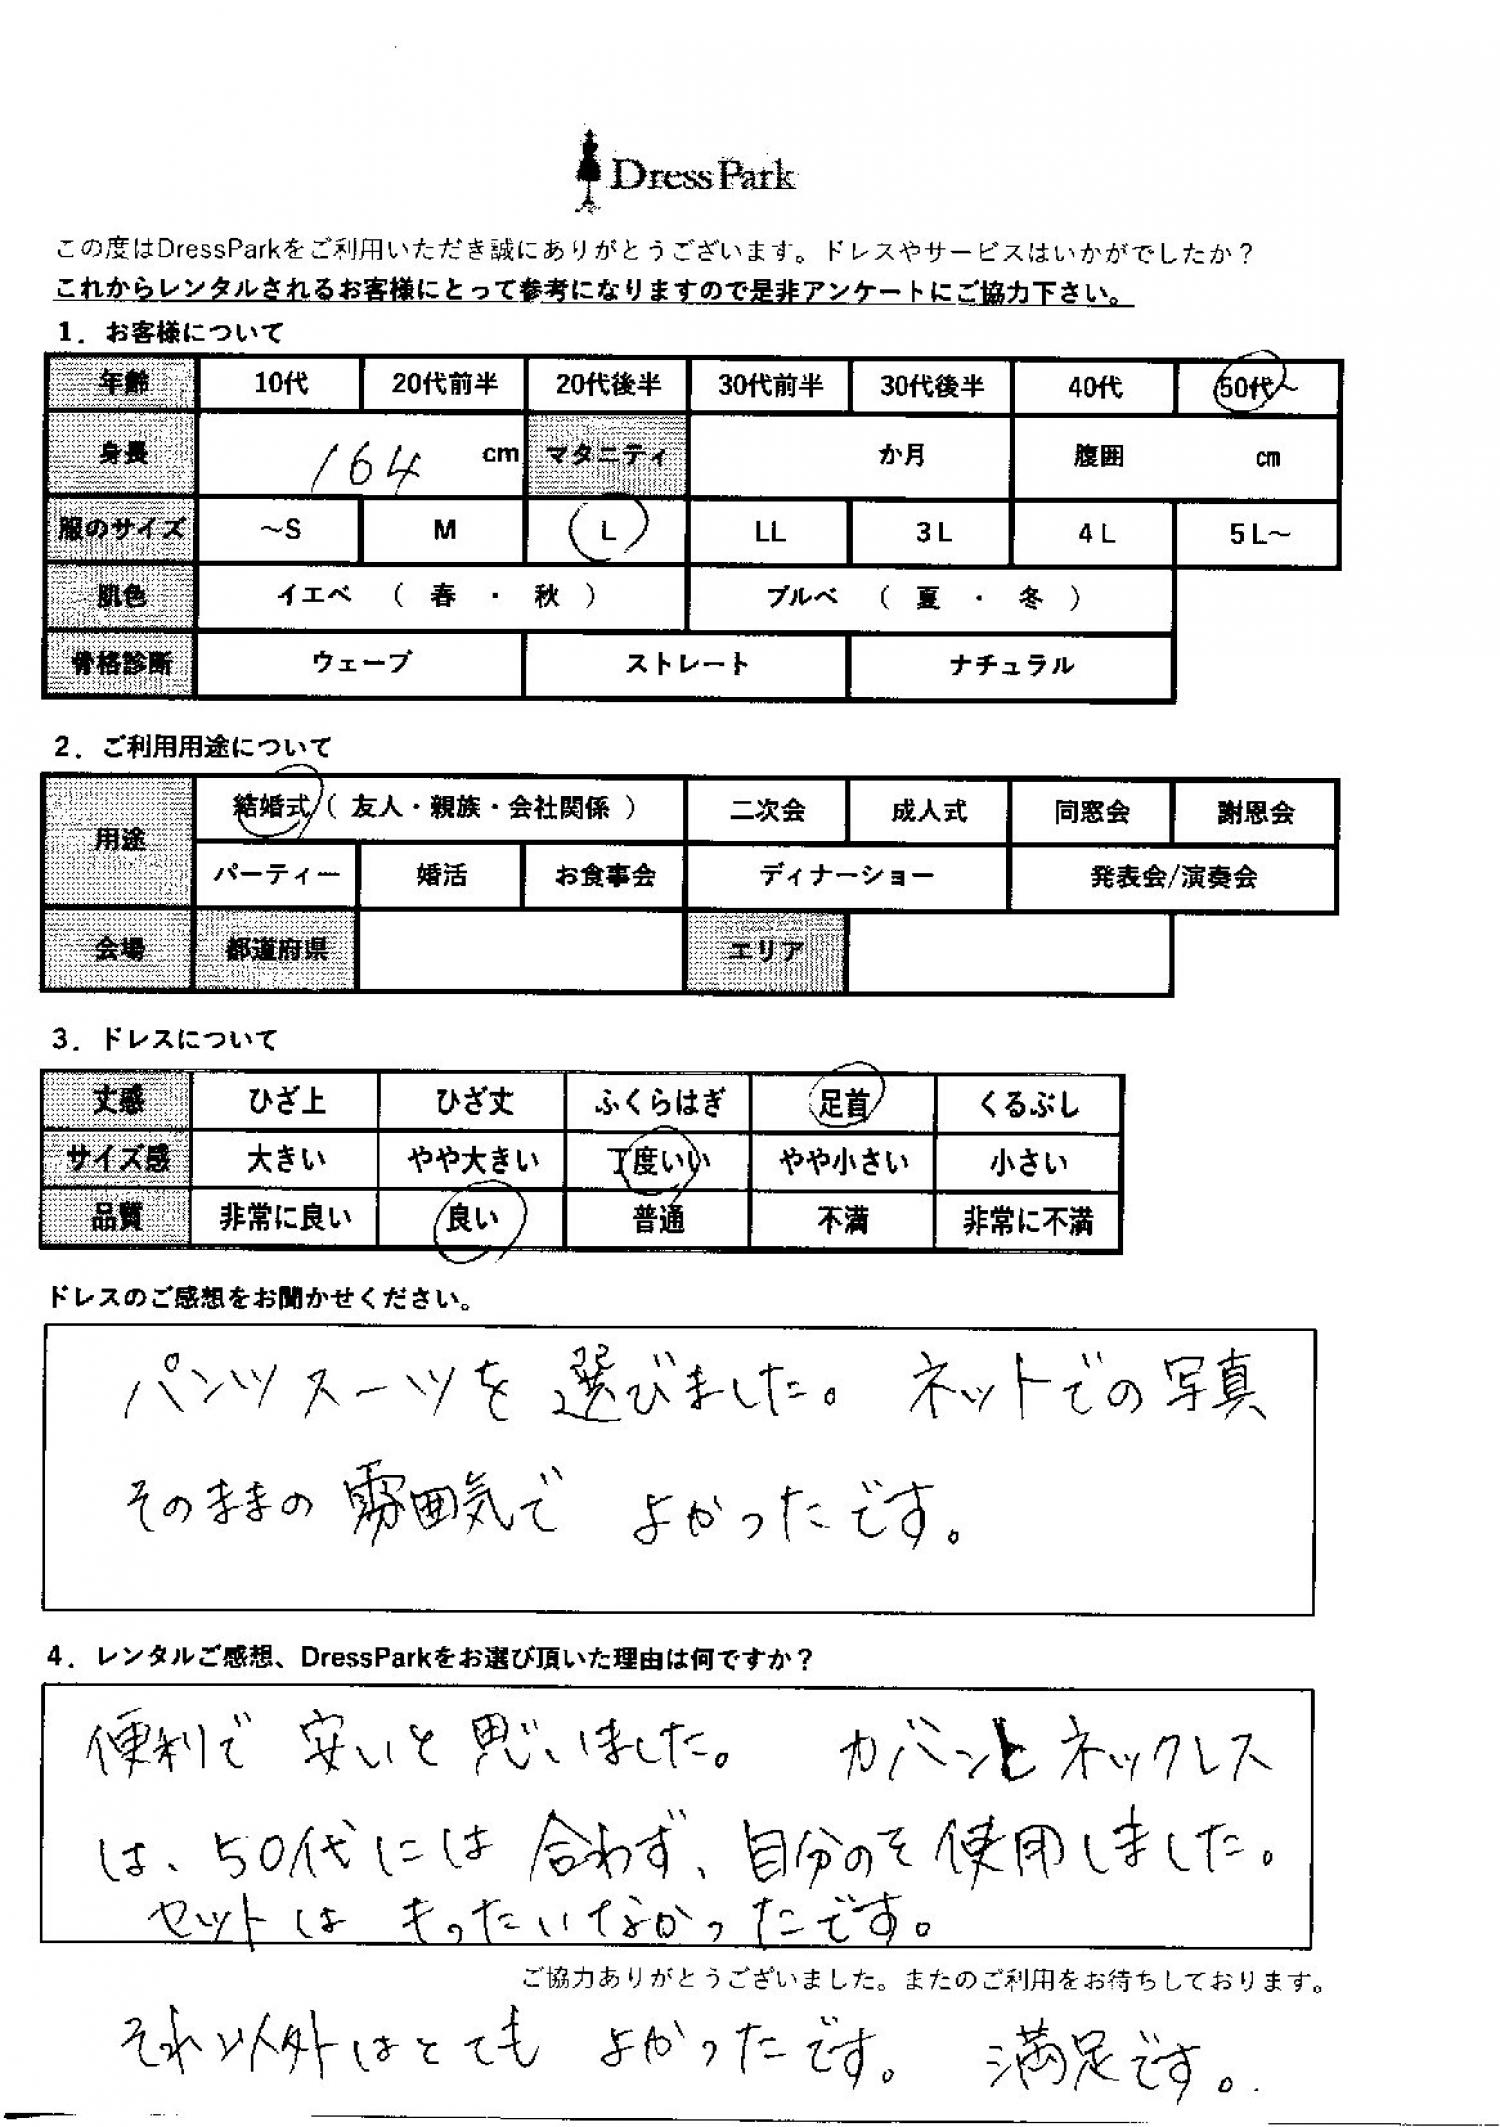 DressPark
この度はDressParkをご利用いただき誠にありがとうございます。ドレスやサービスはいかがでしたか？
これからレンタルされるお客様にとって参考になりますので是非アンケートにご協力下さい。
1．お客様について
年齢 10代 20代前半 20代後半 30代前半 30代後半 40代 50代～
身長 164 cm マタニティ か月 腹囲 cm
服のサイズ ～S M L LL 3L 4L 5L～
肌色 イエベ （ 春 ・ 秋 ） ブルベ （ 夏 ・ 冬 ）
骨格診断 ウェーブ ストレート ナチュラル
2．ご利用用途について
用途 結婚式（ 友人・親族・会社関係 ） 二次会 成人式 同窓会 謝恩会
パーティー 婚活 お食事会 ディナーショー 発表会/演奏会
会場 都道府県 エリア
3．ドレスについて
丈感 ひざ上 ひざ丈 ふくらはぎ 足首 くるぶし
サイズ感 大きい やや大きい 丁度いい やや小さい 小さい
品質 非常に良い 良い 普通 不満 非常に不満
ドレスのご感想をお聞かせください。
パンツスーツを選びました。ネットでの写真
そのままの雰囲気で よかったです。
4．レンタルご感想、DressParkをお選び頂いた理由は何ですか？
便利で 安いと思いました。 カバンとネックレス
は、50代には 合わず、自分のを使用しました。
セットは もったいなかったです。
ご協力ありがとうございました。またのご利用をお待ちしております。
それ以外はとても よかったです。 満足です。